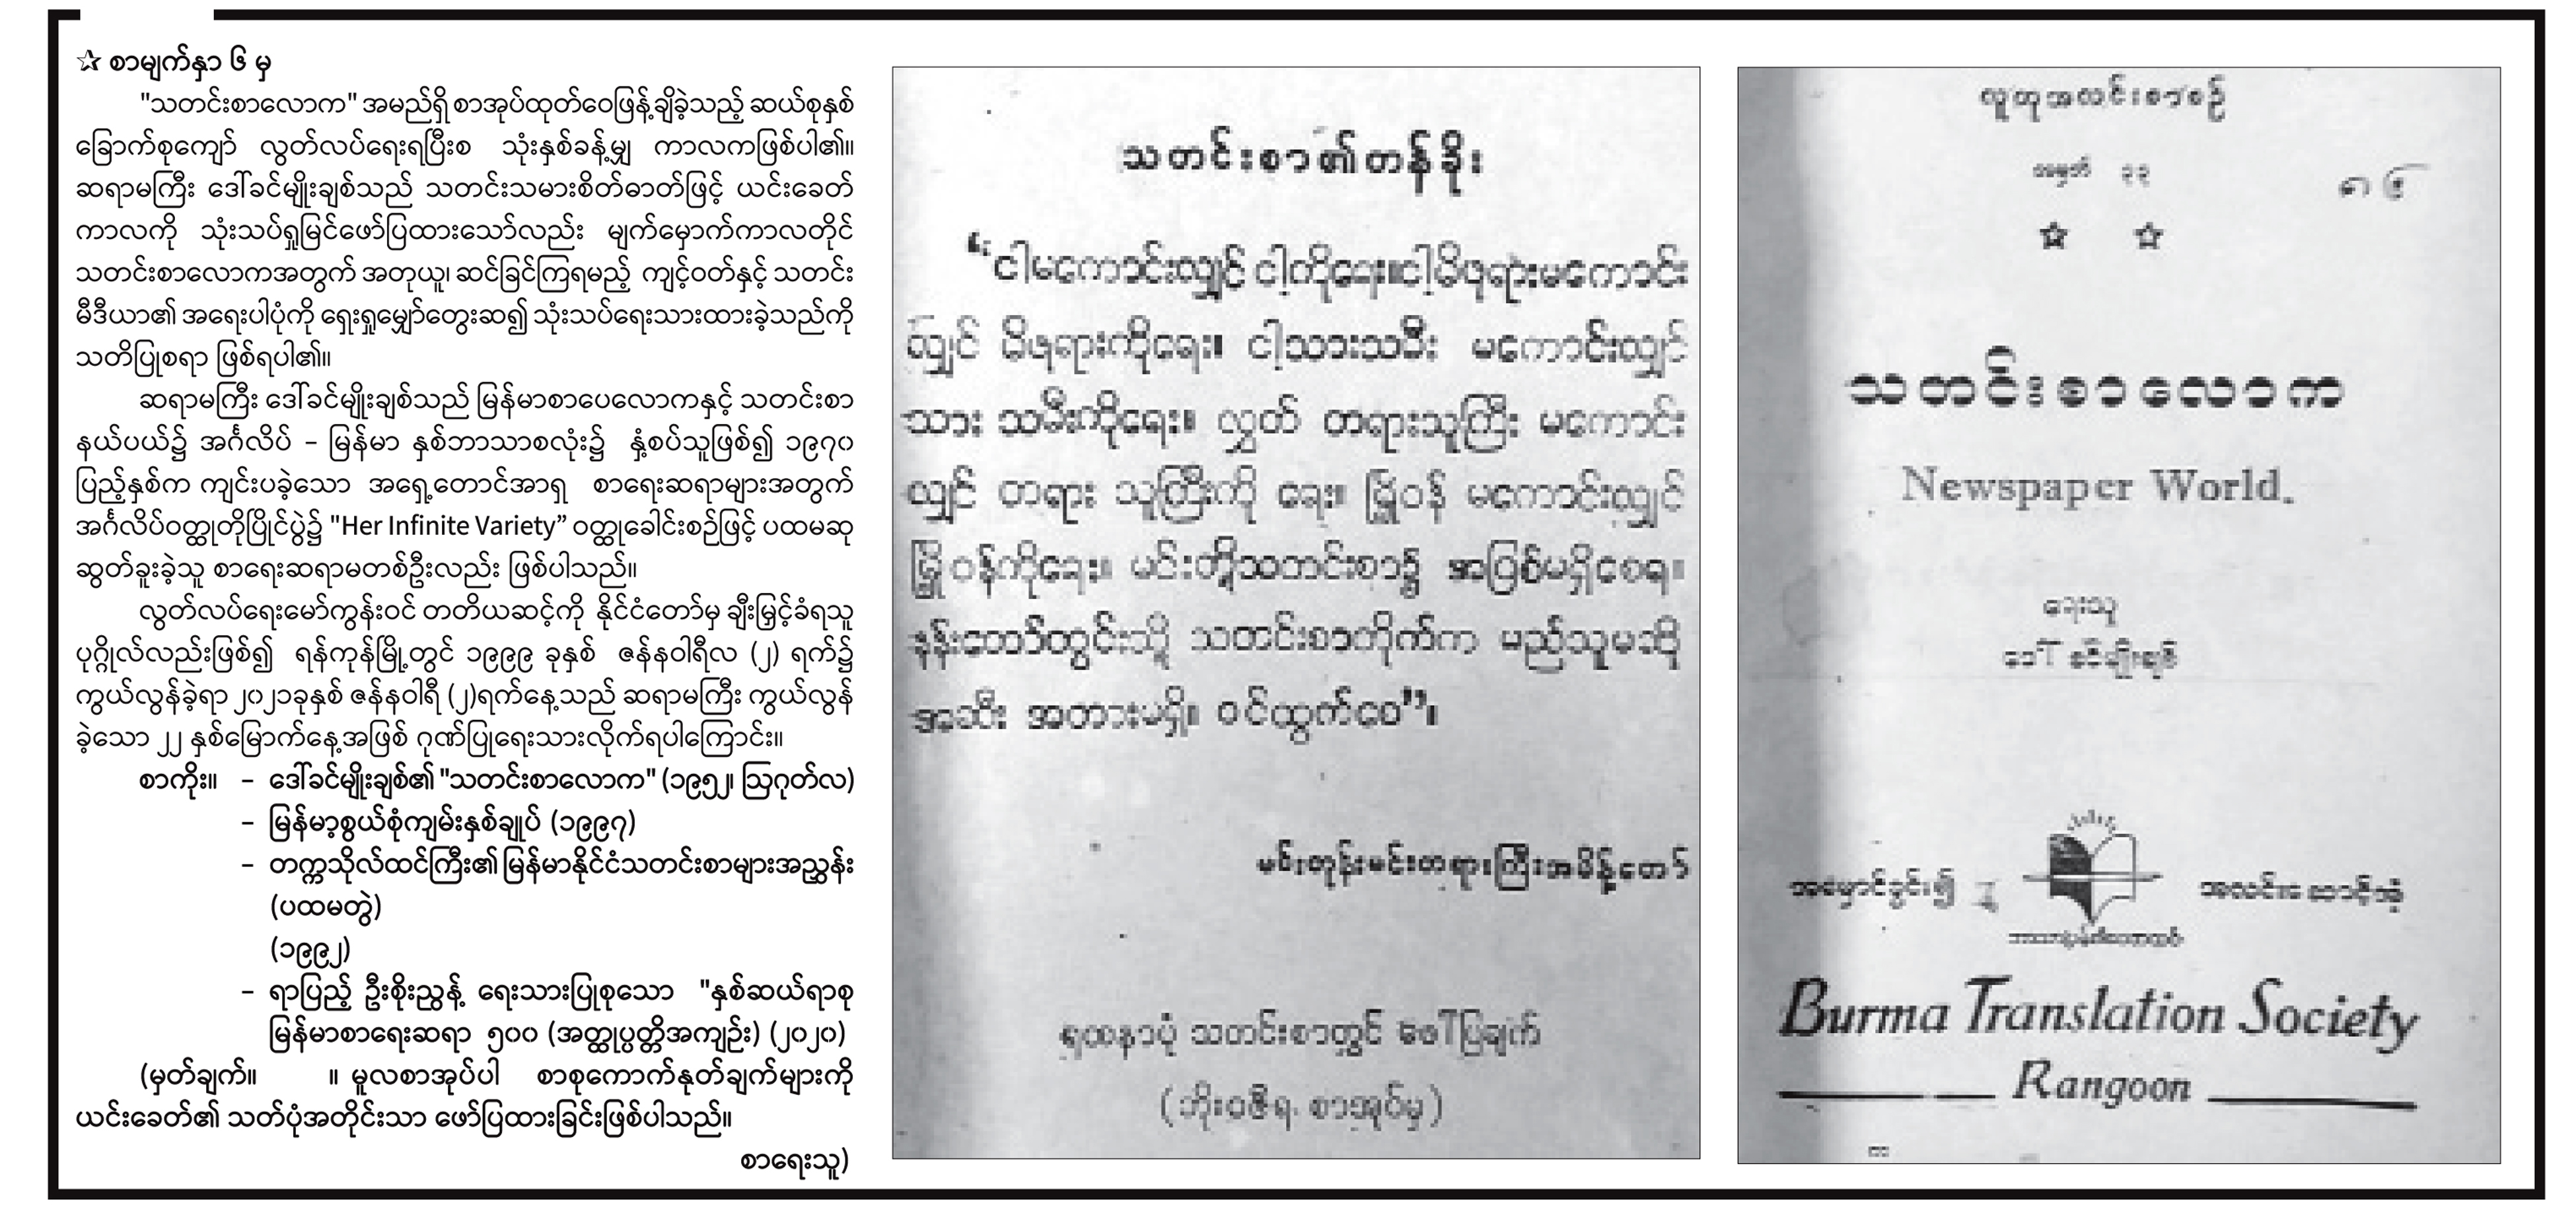 ☆ စာမျက်နှာ ၆ မှ
"သတင်းစာလောက" အမည်ရှိ စာအုပ်ထုတ်ဝေဖြန့်ချိခဲ့သည့် ဆယ်စုနှစ်
ခြောက်စုကျော် လွတ်လပ်ရေးရပြီးစ သုံးနှစ်ခန့်မျှ ကာလကဖြစ်ပါ၏။
ဆရာမကြီး ဒေါ်ခင်မျိုးချစ်သည် သတင်းသမားစိတ်ဓာတ်ဖြင့် ယင်းခေတ်
ကာလကို သုံးသပ်ရှုမြင်ဖော်ပြထားသော်လည်း မျက်မှောက်ကာလတိုင်
သတင်းစာလောကအတွက် အတုယူ၊ ဆင်ခြင်ကြရမည့် ကျင့်ဝတ်နှင့် သတင်း
မီဒီယာ၏ အရေးပါပုံကို ရှေးရှုမျှော်တွေးဆ၍ သုံးသပ်ရေးသားထားခဲ့သည်ကို
သတိပြုစရာ ဖြစ်ရပါ၏။
ဆရာမကြီး ဒေါ်ခင်မျိုးချစ်သည် မြန်မာစာပေလောကနှင့် သတင်းစာ
နယ်ပယ်၌ အင်္ဂလိပ် – မြန်မာ နှစ်ဘာသာစလုံး၌ နှံ့စပ်သူဖြစ်၍ ၁၉၇၀
ပြည့်နှစ်က ကျင်းပခဲ့သော အရှေ့တောင်အာရှ စာရေးဆရာများအတွက်
အင်္ဂလိပ်ဝတ္ထုတိုပြိုင်ပွဲ၌ "Her Infinite Variety” ဝတ္ထုခေါင်းစဉ်ဖြင့် ပထမဆု
ဆွတ်ခူးခဲ့သူ စာရေးဆရာမတစ်ဦးလည်း ဖြစ်ပါသည်။
လွတ်လပ်ရေးမော်ကွန်းဝင် တတိယဆင့်ကို နိုင်ငံတော်မှ ချီးမြှင့်ခံရသူ
ပုဂ္ဂိုလ်လည်းဖြစ်၍ ရန်ကုန်မြို့တွင် ၁၉၉၉ ခုနှစ် ဇန်နဝါရီလ (၂) ရက်၌
ကွယ်လွန်ခဲ့ရာ ၂၀၂၁ခုနှစ် ဇန်နဝါရီ (၂)ရက်နေ့သည် ဆရာမကြီး ကွယ်လွန်
ခဲ့သော ၂၂ နှစ်မြောက်နေ့အဖြစ် ဂုဏ်ပြုရေးသားလိုက်ရပါကြောင်း။
စာကိုး။ – ဒေါ်ခင်မျိုးချစ်၏ "သတင်းစာလောက" (၁၉၅၂၊ ဩဂုတ်လ)
– မြန်မာ့စွယ်စုံကျမ်းနှစ်ချုပ် (၁၉၉၇)
– တက္ကသိုလ်ထင်ကြီး၏ မြန်မာနိုင်ငံသတင်းစာများအညွှန်း
(ပထမတွဲ)
(၁၉၉၂)
– ရာပြည့် ဦးစိုးညွန့် ရေးသားပြုစုသော "နှစ်ဆယ်ရာစု
မြန်မာစာရေးဆရာ ၅၀၀ (အတ္ထုပ္ပတ္တိအကျဉ်း) (၂၀၂၀)
(မှတ်ချက်။ ။ မူလစာအုပ်ပါ စာစုကောက်နုတ်ချက်များကို
ယင်းခေတ်၏ သတ်ပုံအတိုင်းသာ ဖော်ပြထားခြင်းဖြစ်ပါသည်။
စာရေးသူ)
သတင်းစာ၏တန်ခိုး
“ငါမကောင်းလျှင် ငါ့ကိုရေး။ငါ့မိဖုရားမကောင်း
လျှင် မိဖုရားကိုရေး။ ငါ့သားသမီး မကောင်းလျှင်
သား သမီးကိုရေး။ လွှတ် တရားသူကြီး မကောင်း
လျှင် တရား သူကြီးကို ရေး။ မြို့ဝန် မကောင်းလျှင်
မြို့ဝန်ကိုရေး။ မင်းတို့သတင်းစာ၌ အပြစ်မရှိစေရ။
နန်းတော်တွင်းသို့ သတင်းစာတိုက်က မည်သူမဆို
အဆီး အတားမရှိ။ ဝင်ထွက်စေ”။
မင်းတုန်းမင်းတရားကြီးအမိန့်တော်
ရတနာပုံ သတင်းစာတွင် ဖေါ်ပြချက်
(ဘိုးဝဇီရ စာအုပ်မှ)
လူထုအလင်းစာစဉ်
အမှတ် ၃၃
☆ ☆
သတင်းစာလောက
Newspaper World.
ရေးသူ
ဒေါ် ခင်မျိုးချစ်
အမှောင်ခွင်း၍ အလင်းဆောင်အံ့
Burma Translation Society
Rangoon